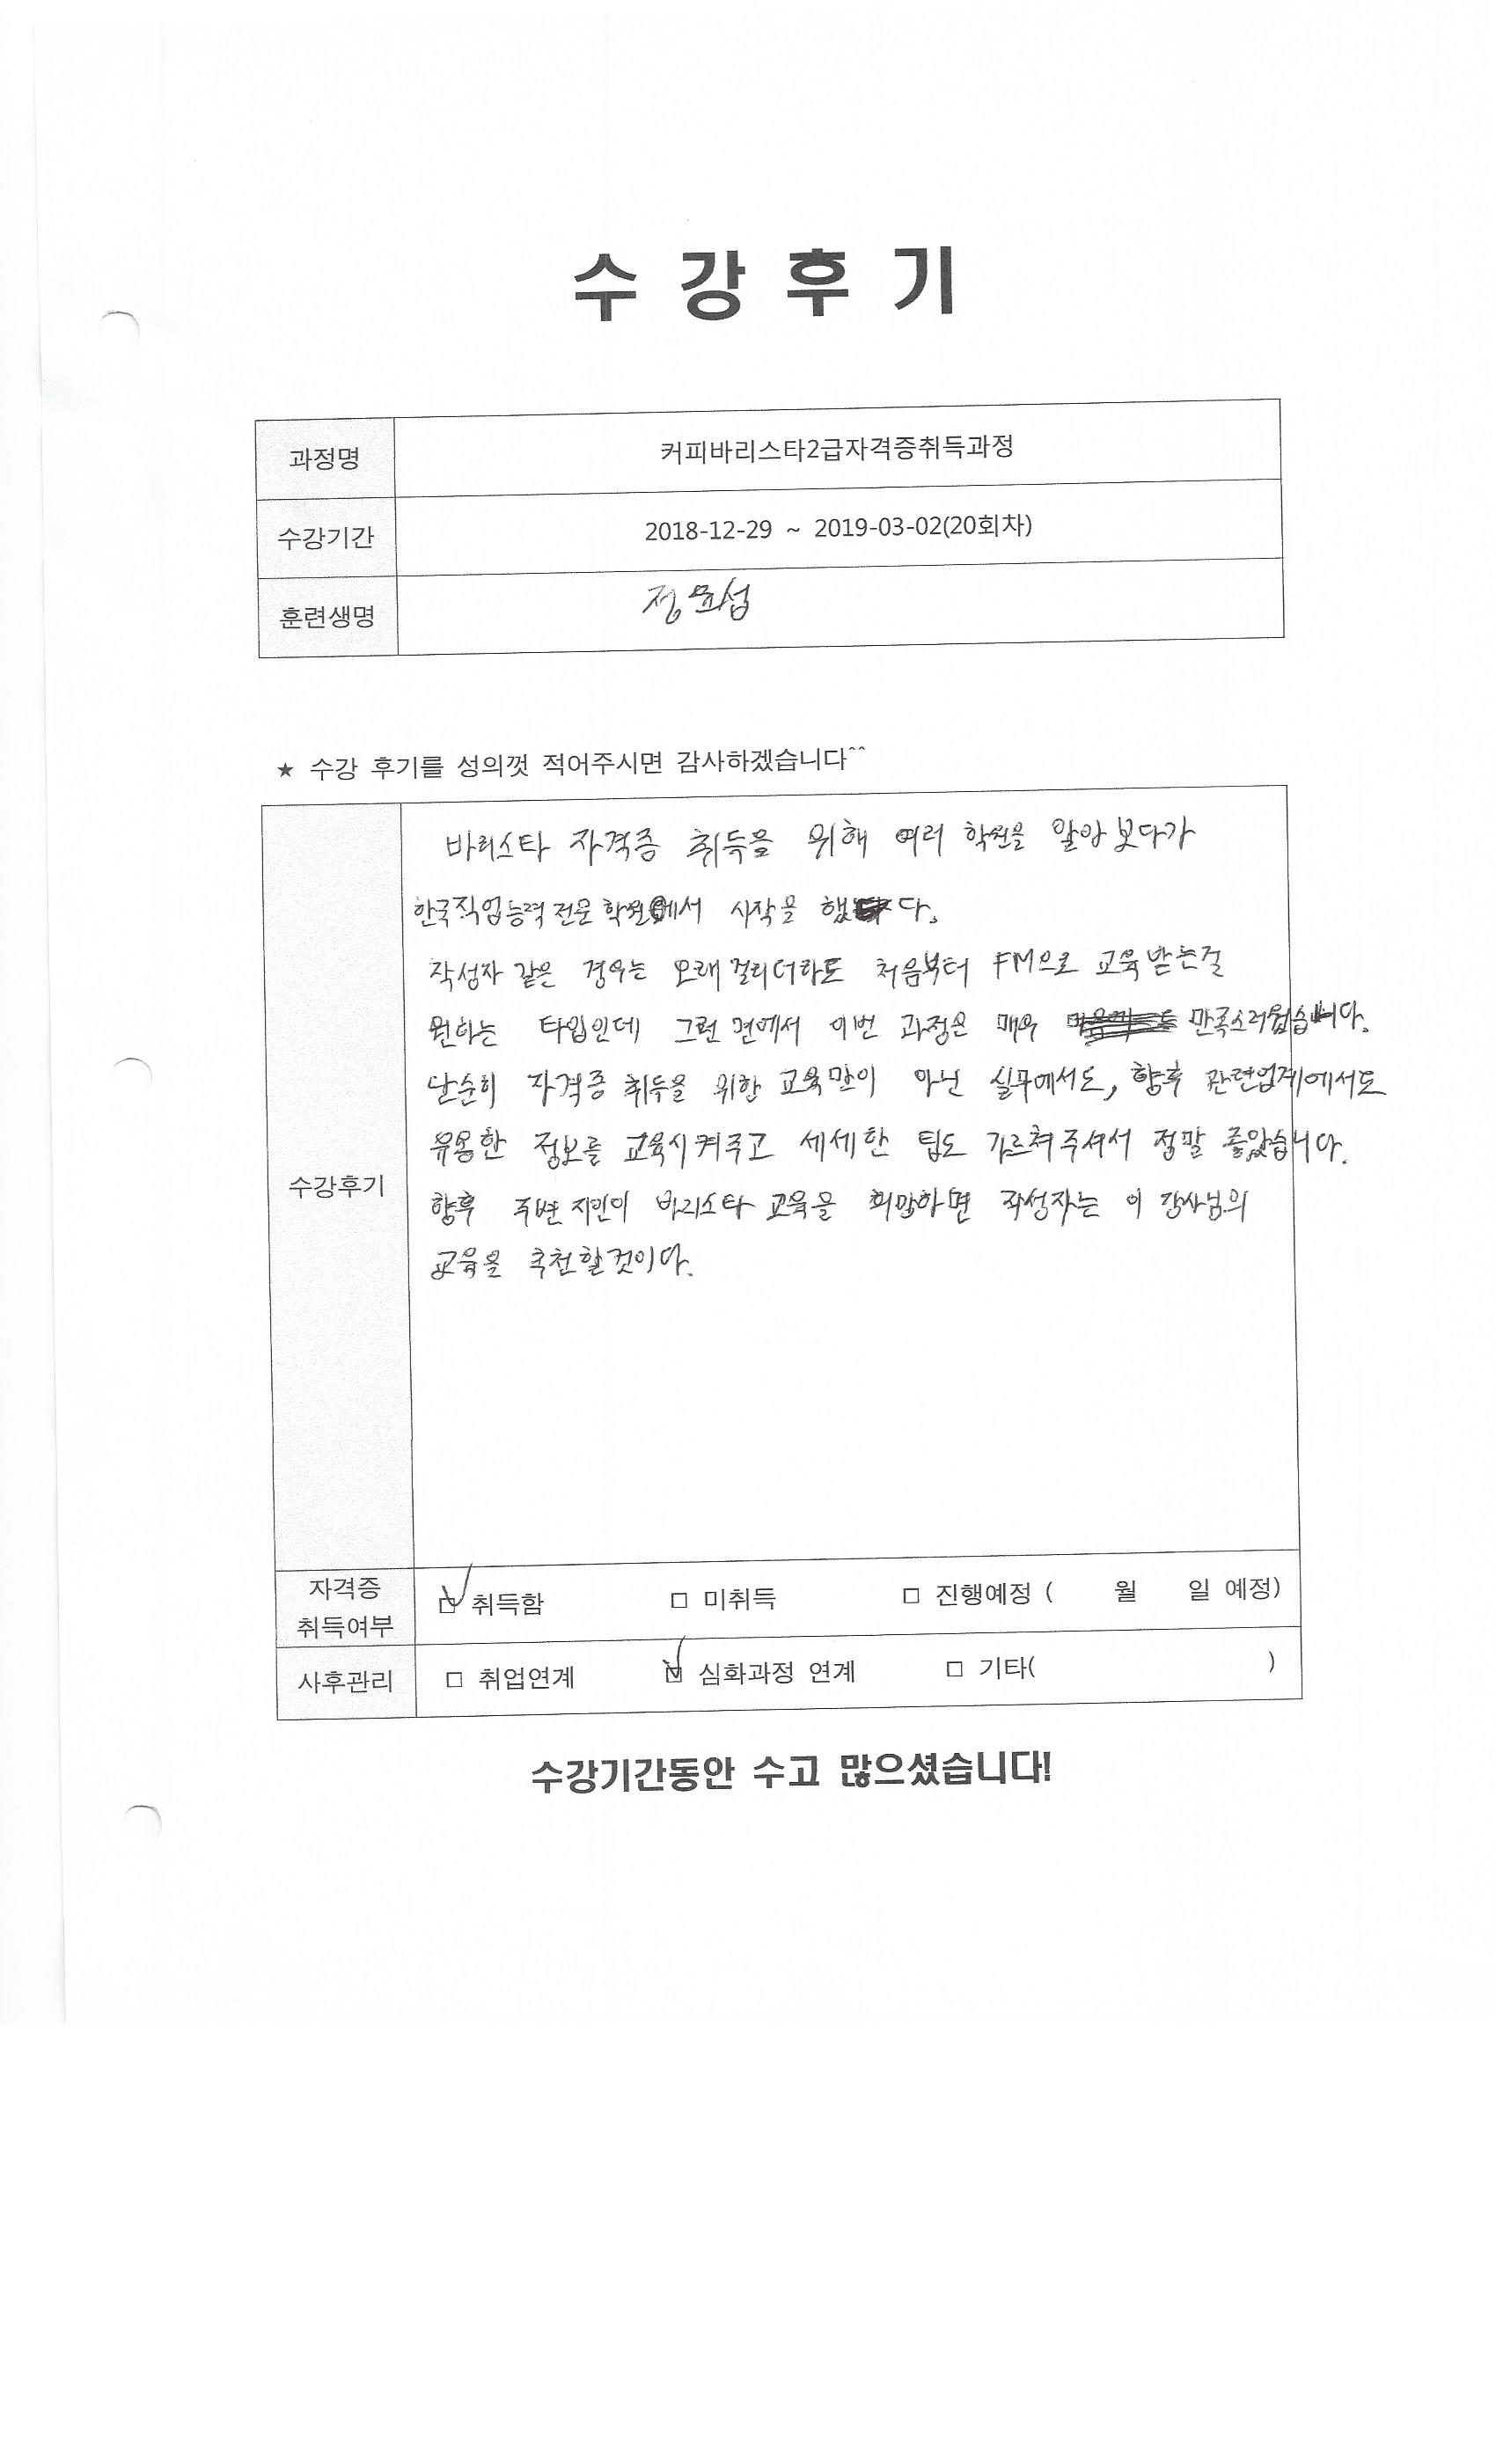 수강후기
과정명 커피바리스타2급자격증취득과정
수강기간 2018-12-29 ~ 2019-03-02(20회차)
훈련생명
★ 수강 후기를 성의껏 적어주시면 감사하겠습니다^^
바리스타 자격증 취득을 위해 여러 학원을 알아보다가
한국직업능력전문학원에서 시작을 했다.
작성자 같은 경우는 오래걸리더라도 처음부터 FM으로 교육받는걸
원하는 타입인데 그런 면에서 이번 과정은 매우 만족스러웠습니다.
단순히 자격증 취득을 위한 교육만이 아닌 실무에서도, 향후 관련업계에서도
유용한 정보를 교육시켜주고 세세한 팁도 가르쳐주셔서 정말 좋았습니다.
수강후기
향후 주변 지인이 바리스타 교육을 희망하면 작성자는 이 강사님의
교육을 추천할것이다.
자격증 취득여부 □ 취득함 □ 미취득 □ 진행예정 ( 월 일 예정)
사후관리 □ 취업연계 □ 심화과정 연계 □ 기타( )
수강기간동안 수고 많으셨습니다!